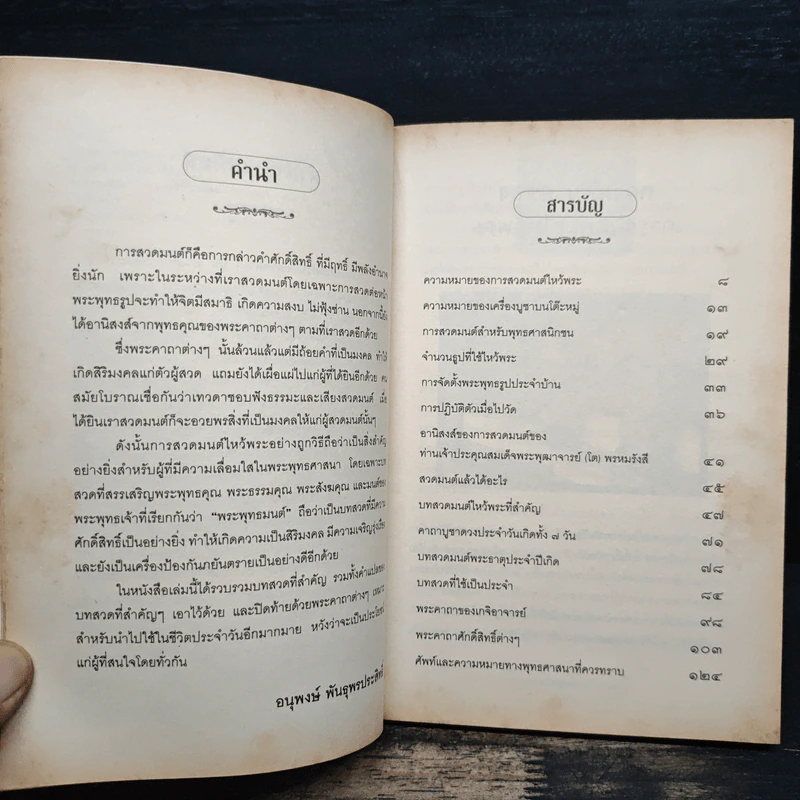 คำนำ
การสวดมนต์ก็คือการกล่าวคำศักดิ์สิทธิ์ ที่มีฤทธิ์ มีพลังอำนาจ
ยิ่งนัก เพราะในระหว่างที่เราสวดมนต์โดยเฉพาะการสวดต่อหน้า
พระพุทธรูปจะทำให้จิตมีสมาธิ เกิดความสงบ ไม่ฟุ้งซ่าน นอกจากนี้ยัง
ได้อานิสงส์จากพุทธคุณของพระคาถาต่างๆ ตามที่เราสวดอีกด้วย
ซึ่งพระคาถาต่างๆ นั้นล้วนแล้วแต่มีถ้อยคำที่เป็นมงคล ทำให้
เกิดสิริมงคลแก่ตัวผู้สวด แถมยังได้เผื่อแผ่ไปแก่ผู้ที่ได้ยินอีกด้วย คน
สมัยโบราณเชื่อกันว่าเทวดาชอบฟังธรรมะและเสียงสวดมนต์ เมื่อ
ได้ยินเราสวดมนต์ก็จะอวยพรสิ่งที่เป็นมงคลให้แก่ผู้สวดมนต์นั้นๆ
ดังนั้นการสวดมนต์ไหว้พระอย่างถูกวิธีถือว่าเป็นสิ่งสำคัญ
อย่างยิ่งสำหรับผู้ที่มีความเลื่อมใสในพระพุทธศาสนา โดยเฉพาะบท
สวดที่สรรเสริญพระพุทธคุณ พระธรรมคุณ พระสังฆคุณ และมนต์ของ
พระพุทธเจ้าที่เรียกกันว่า “พระพุทธมนต์” ถือว่าเป็นบทสวดที่มีความ
ศักดิ์สิทธิ์เป็นอย่างยิ่ง ทำให้เกิดความเป็นสิริมงคล มีความเจริญรุ่งเรือง
และยังเป็นเครื่องป้องกันภยันตรายเป็นอย่างดีอีกด้วย
ในหนังสือเล่มนี้ได้รวบรวมบทสวดที่สำคัญ รวมทั้งคำแปลของ
บทสวดที่สำคัญๆ เอาไว้ด้วย และปิดท้ายด้วยพระคาถาต่างๆ
สำหรับนำไปใช้ในชีวิตประจำวันอีกมากมาย หวังว่าจะเป็นประโยชน์
แก่ผู้ที่สนใจโดยทั่วกัน
อนุพงษ์ พันธุพรประสิทธิ์
สารบัญ
ความหมายของการสวดมนต์ไหว้พระ ๘
ความหมายของเครื่องบูชาบนโต๊ะหมู่ ๑๓
การสวดมนต์สำหรับพุทธศาสนิกชน ๑๙
จำนวนธูปที่ใช้ไหว้พระ ๒๙
การจัดตั้งพระพุทธรูปประจำบ้าน ๓๓
การปฏิบัติตัวเมื่อไปวัด ๓๖
อานิสงส์ของการสวดมนต์ของ
ท่านเจ้าประคุณสมเด็จพระพุฒาจารย์ (โต) พรหมรังสี ๔๑
สวดมนต์แล้วได้อะไร ๔๕
บทสวดมนต์ไหว้พระที่สำคัญ ๔๗
คาถาบูชาดวงประจำวันเกิดทั้ง ๗ วัน ๗๑
บทสวดมนต์พระธาตุประจำปีเกิด ๗๘
บทสวดที่ใช้เป็นประจำ ๘๔
พระคาถาของเกจิอาจารย์ ๙๘
พระคาถาศักดิ์สิทธิ์ต่างๆ ๑๐๓
ศัพท์และความหมายทางพุทธศาสนาที่ควรทราบ ๑๒๔